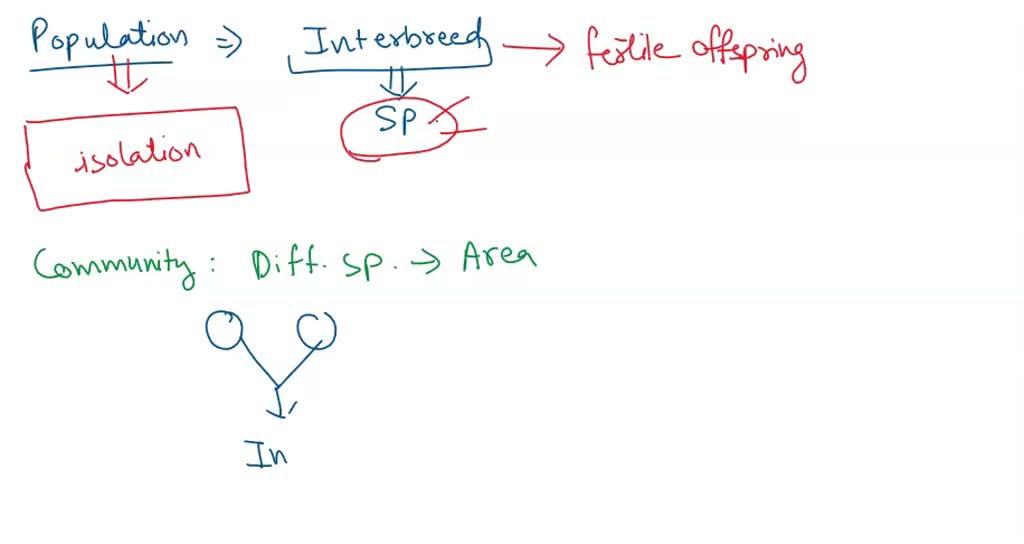 Population ⇒ Interbreed → fertile offspring
SP
isolation
Community: Diff. sp. → Area
In